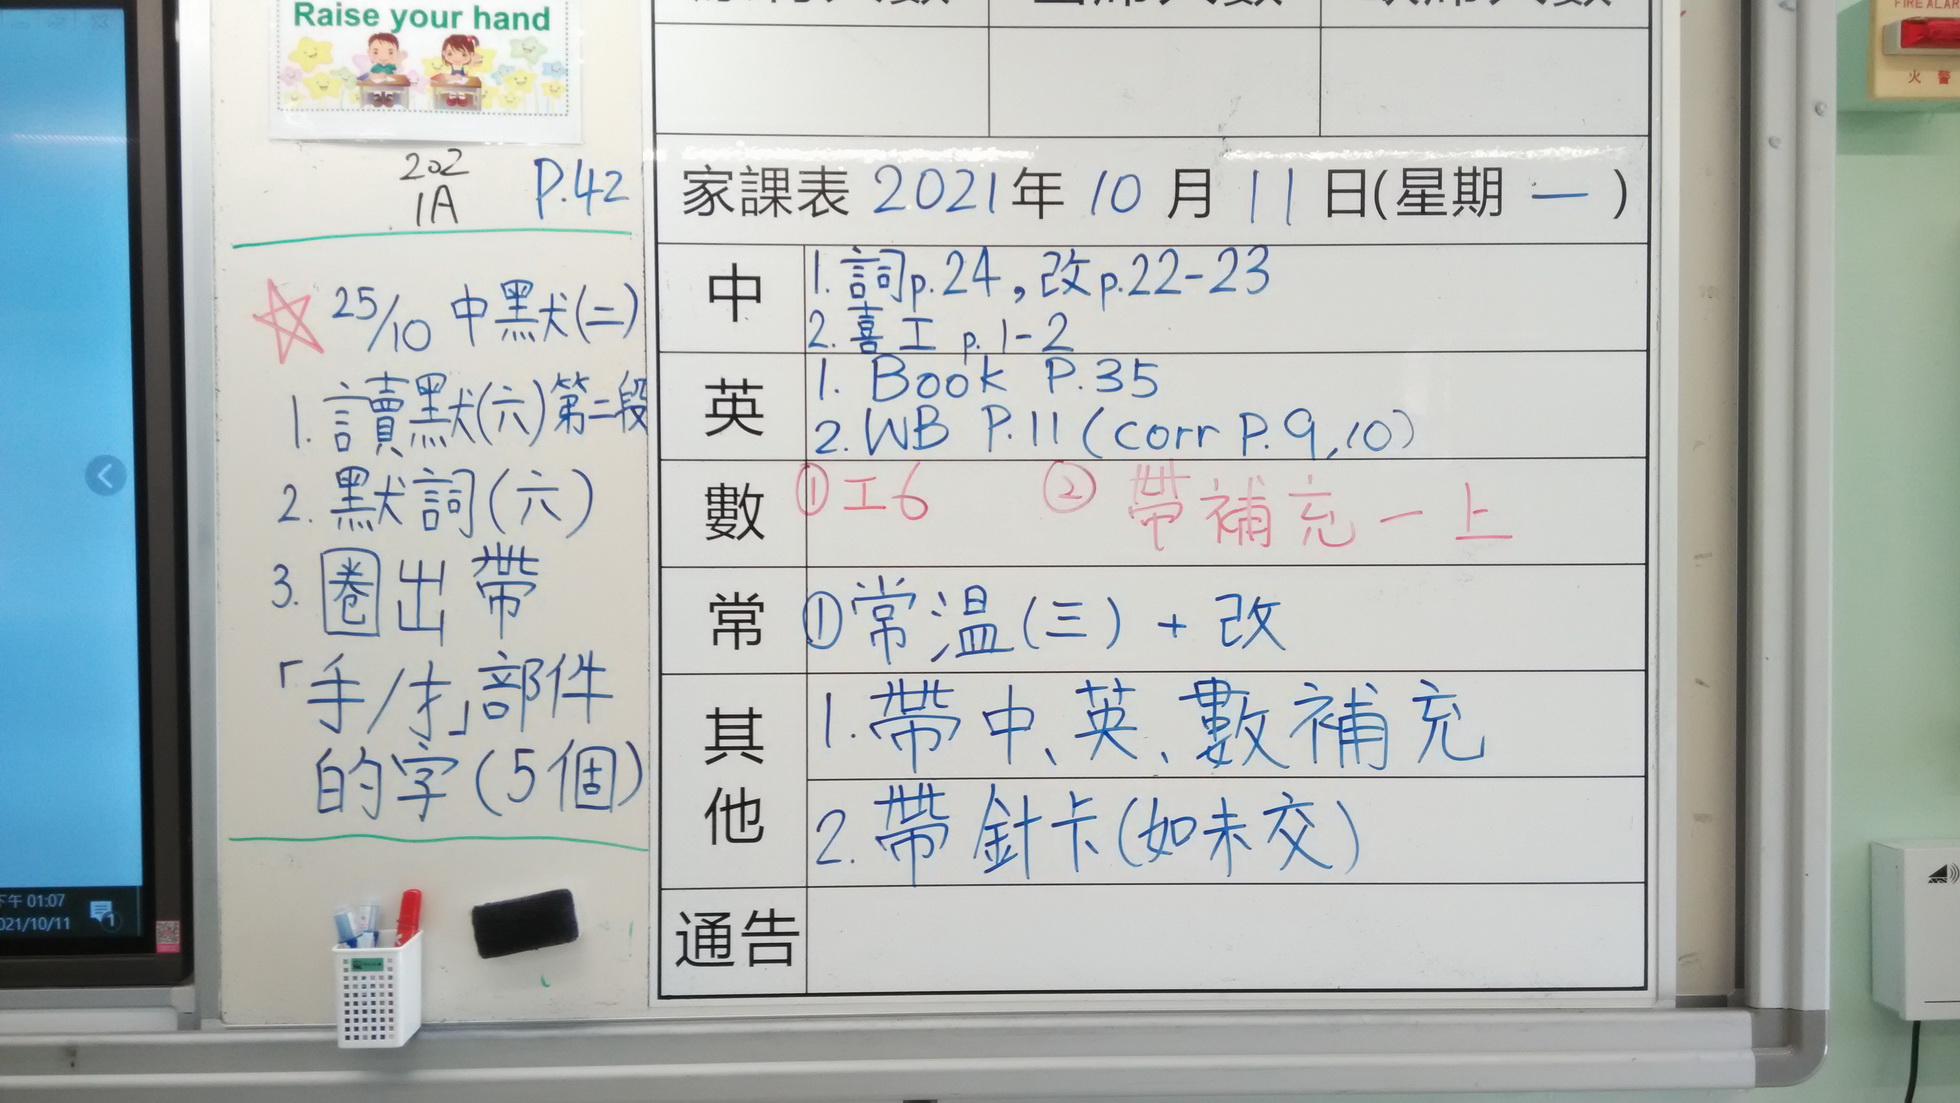 Raise your hand
202
1A
P.42
25/10 中默(二)
1. 讀默(六)第二段
2. 默詞(六)
3. 圈出帶
「手/扌」部件
的字(5個)
家課表 2021年 10 月 11 日(星期 一 )
中
1. 詞p.24,改p.22-23
2. 喜工 p.1-2
英
1. Book P.35
2. WB P.11 (corr P.9,10)
數
①工6 ② 帶補充一上
常
①常温(三) + 改
其他
1. 帶中、英、數補充
2. 帶針卡(如未交)
通告
下午 01:07
021/10/11
1
FIRE ALAR
火 警